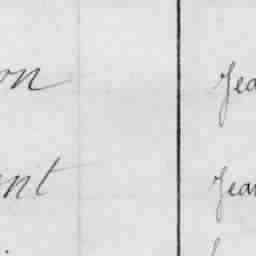 on Jea
nt Jean